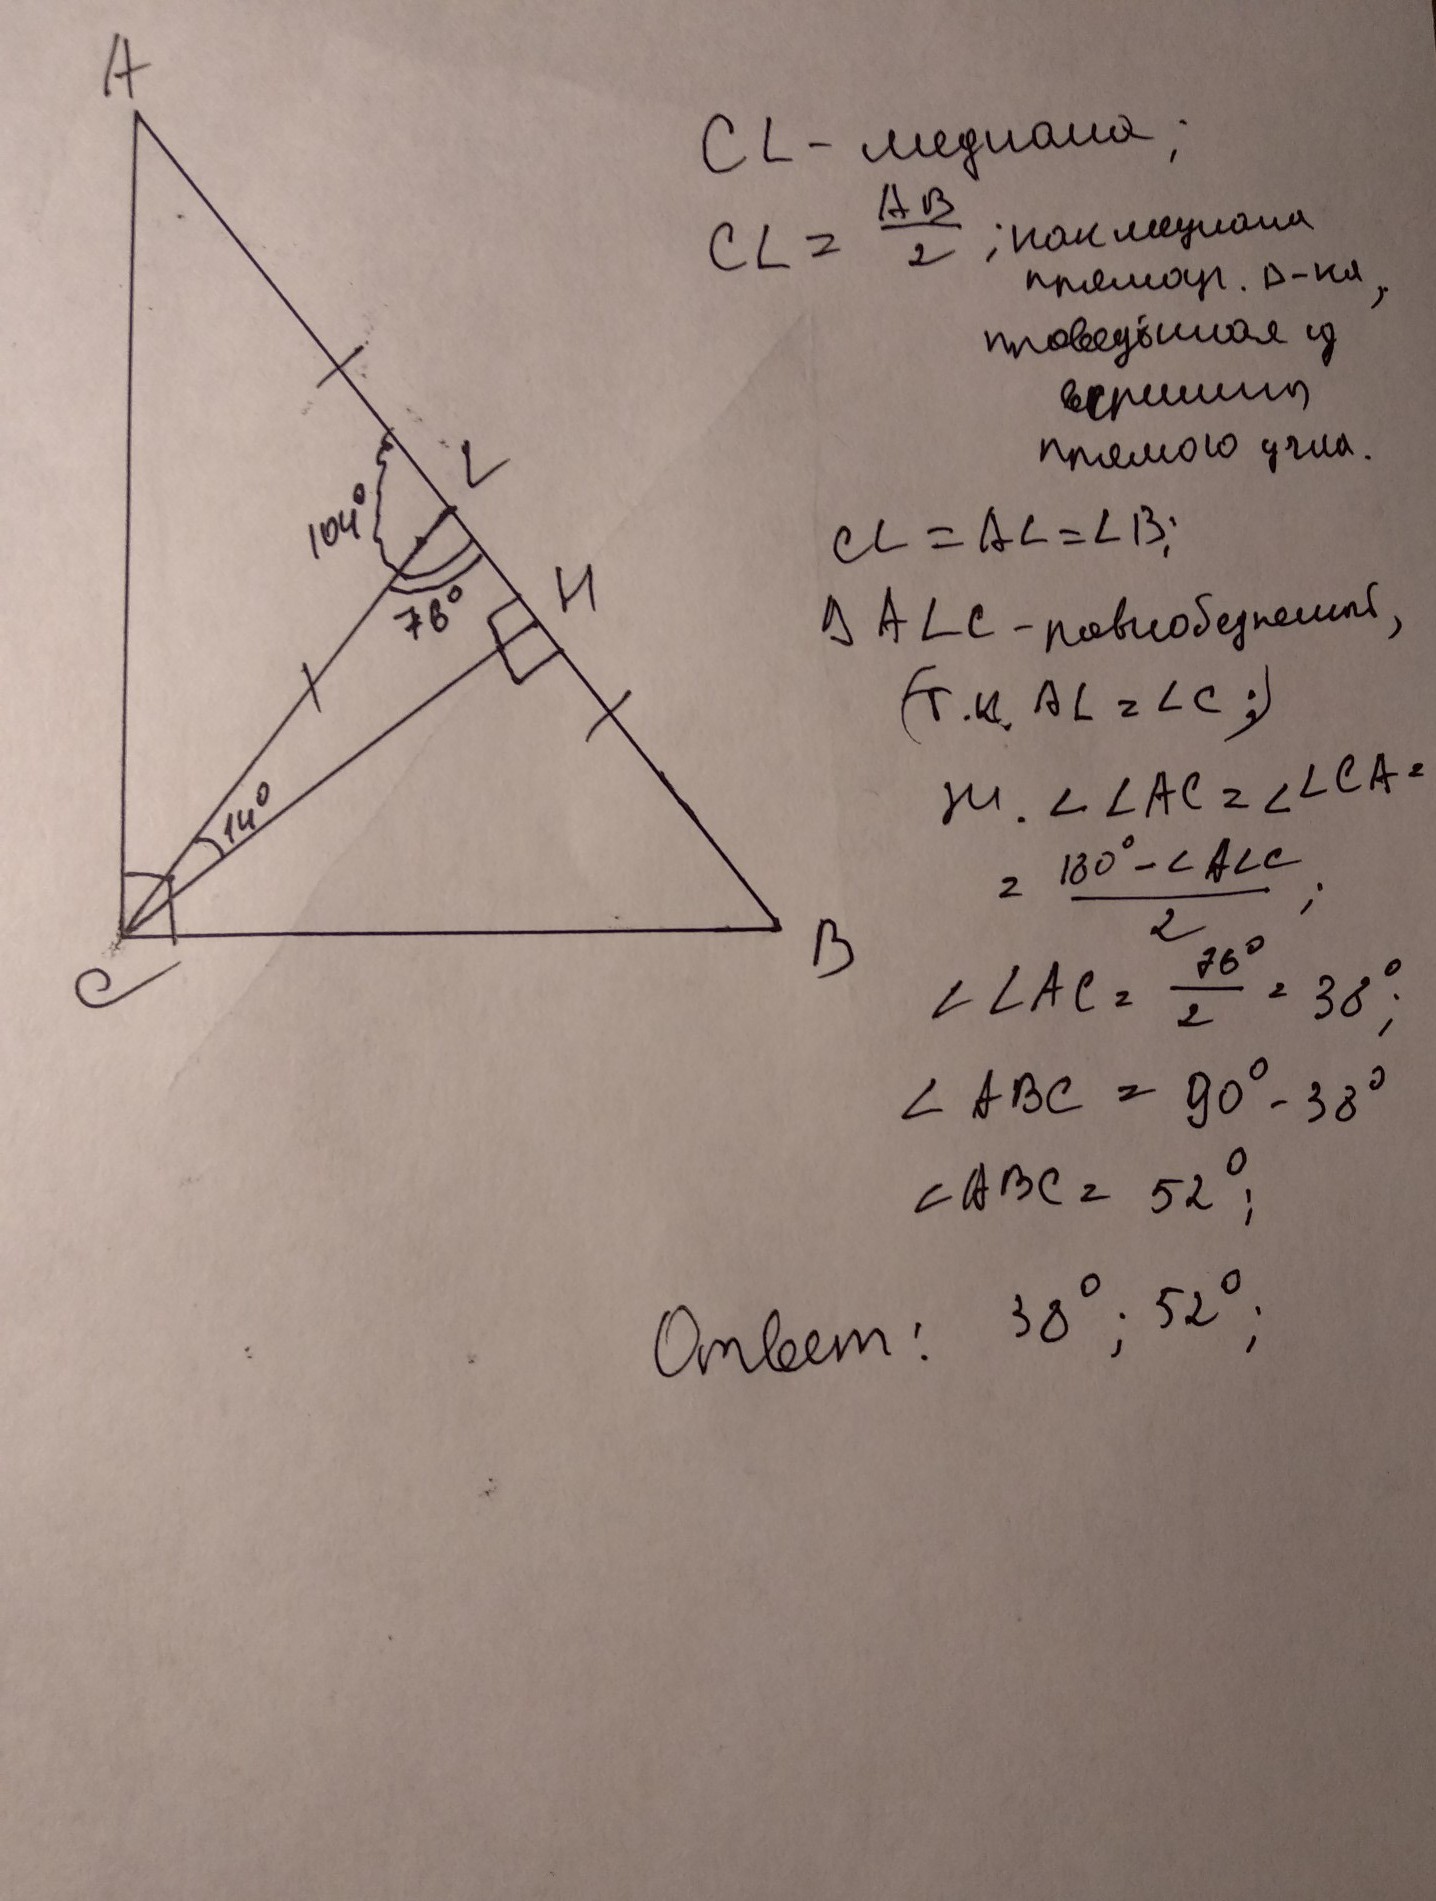 A
CL - медиана;
CL = AB/2 ; как медиана
прямоуг. Δ-ка,
проведённая из
вершины
прямого угла.
L
104°
CL = AL = LB;
H
76°
Δ ALC - равнобедренный,
(т.к. AL = LC;)
14°
∠ LAC = ∠ LCA =
= 180° - ∠ ALC / 2 ;
B
C
∠ LAC = 76°/2 = 38°;
∠ ABC = 90° - 38°
∠ ABC = 52°;
Ответ: 38°; 52°;